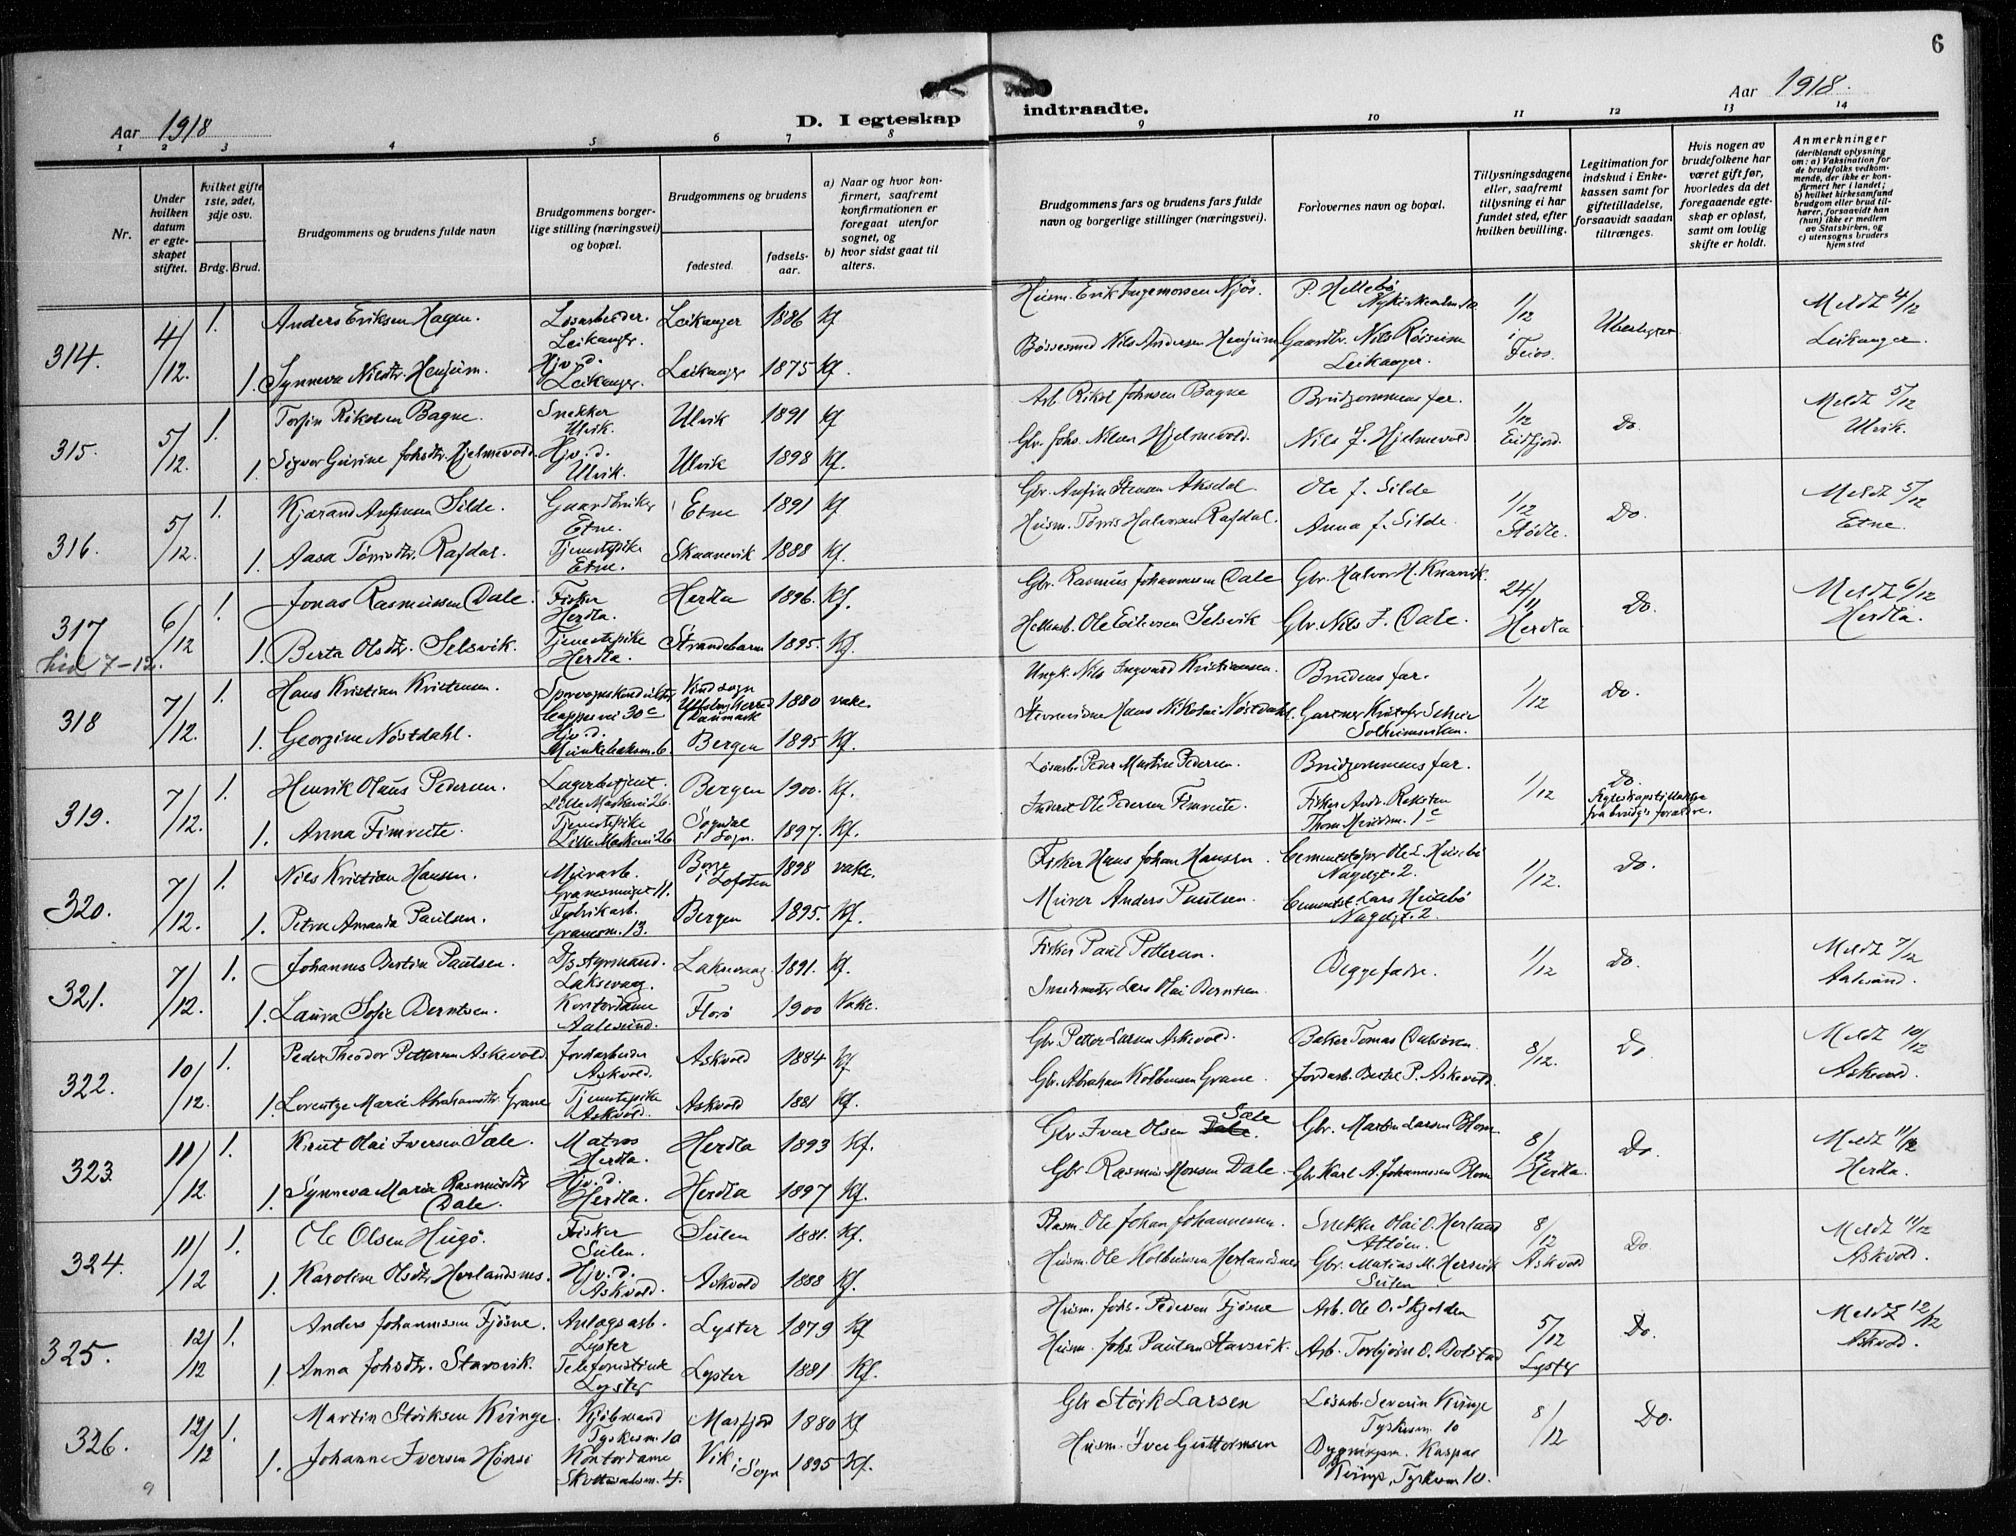 6
Aar 1918
D. I egteskap indtraadte.
Aar 1918.
1 2 3 4 5 6 7 8 9 10 11 12 13 14
Nr.
Under hvilken datum er egteskapet stiftet.
hvilket gifte 1ste, 2det, 3dje osv.
Brdg. Brud.
Brudgommens og brudens fulde navn
Brudgommens borgerlige stilling (næringsvei) og bopæl.
Brudgommens og brudens
fødested.
fødselsaar.
a) Naar og hvor konfirmert, saafremt konfirmationen er foregaat utenfor sognet, og
b) hvor sidst gaat til alters.
Brudgommens fars og brudens fars fulde navn og borgerlige stillinger (næringsvei).
Forlovernes navn og bopæl.
Tillysningsdagene eller, saafremt tillysning ei har fundet sted, efter hvilken bevilling.
Legitimation for indskud i Enkekassen samt for giftetilladelse, forsaavidt saadan tiltrænges.
Hvis nogen av brudefolkene har været gift før, hvorledes da det foregaaende egteskap er opløst, samt om lovlig skifte er holdt.
Anmerkninger (deriblandt oplysning om: a) Vaksination for de brudefolks vedkommende, der ikke er konfirmert her i landet; b) hvilket kirkesamfund brudgom eller brud tilhører, forsaavidt han (hun) ikke er medlem av Statskirken, og c) utensogns bruders hjemsted
314. 4/12. 1. Anders Eriksen Hagen. Løsarbeider. Leikanger. Leikanger 1886 Kf Husm. Erik Ingemorsen Njøs. P. Hellebø 1/12 i Feios. Meldt 4/12 Leikanger.
1. Synneva Nilsdtr. Henjum. Hjv. d. Leikanger. Leikanger 1875 Kf. Bøssesmed Nils Andersen Henjum Gaardbr. Nils Røisum Leikanger.
315. 5/12. 1. Torfin Rikolsen Bagne. Snekker Ulvik. Ulvik 1891 Kf Arb. Rikol Johnsen Bagne Brudgommens far. 1/12 Eidfjord. Do. Meldt 5/12 Ulvik.
1. Sigvor Gurine Johsdtr. Hjelmevold. Hjv. d. Ulvik. Ulvik 1898 Kf. Gbr. Johs. Nilsen Hjelmevold. Nils J. Hjelmevold
316. 5/12. 1. Kjærand Anfinsen Silde. Gaardbruker Etne. Etne 1891 Kf Gbr. Anfin Stensen Aksdal. Ole J. Silde 1/12 Stødle. Do. Meldt 5/12 Etne.
1. Aasa Tørrisdtr. Rafdal. Tjenestepike Etne. Skaanevik 1888 Kf. Husm. Tørris Halvorsen Rafdal. Anna J. Silde.
317 6/12 1. Jonas Rasmussen Dale. Fisker Herdla. Herdla 1896. Kf. Gbr. Rasmus Johannessen Dale Gbr. Halvor H. Knarvik. 24/11 Herdla Do. Meldt 6/12 Herdla.
1. Berta Olsdtr. Selsvik. Tjenestepike Herdla. Strandebarm 1895. Kf. Ole Eilevsen Selsvik Gbr. Nils J. Dale.
318 7/12. 1. Hans Kristian Kristensen. Sporvognskonduktør 30 c Vind sogn Danmark 1880 vake. Ungk. Nils Ingvard Kristiansen. Brudens far. 1/12 Do.
1. Georgine Nøstdahl. Hjv. d. Munkebaksm. 6. Bergen 1895 Kf. Hans Nikolai Nøstdahl. Gartner Kristofer Solheimsviken.
319. 7/12. 1. Henrik Olaus Pedersen. Lagerbetjent, Lille Markevei 26. Bergen 1900. Kf. Løsarb. Peder Martin Pedersen. Brudgommens far. 1/12 Do. Egteskapstilladelse fra brudg's forældre.
1. Anna Fimreite. Tjenestepike Lille Markevei 26 Sogndal i Sogn. 1897. Kf. Inderst Ole Pedersen Fimreite. Fisker Andr. 1 c
320. 7/12. 1. Nils Kristian Hansen. Murarb. 11. Borge i Lofoten 1898 vake. Fisker Hans Johan Hansen. 2. 1/12. Do.
1. Petra Amanda Paulsen. Fabrikarb. 13. Bergen 1895. Kf. Murer Anders Paulsen. Lars 2.
321. 7/12. 1. Johannes Bertin Paulsen. Laksevaag. Laksevaag 1891. Kf. Fisker Paul Pettersen. Begge fædre. 1/12 Do. Meldt 7/12 Aalesund.
1. Laura Sofie Berntsen. Kontordame Aalesund. Florø 1900 Vake. Lars Olai Berntsen.
322. 10/12. 1. Peder Theodor Pettersen Askevold. Jordarbeider Askvold. Askvold 1884 Kf Gbr. Petter Larsen Askevold. Baker Tomas 8/12. Do Meldt 10/12 Askevold.
1. Lorentze Marie Abrahamsdtr. Grane Tjenestepike Askvold. Askvold 1881 Kf. Gbr. Abraham Kolbensen Grane. Jordarb. Bertel P. Askevold.
323 11/12 1. Knut Olai Iversen Sæle. Matros Herdla. Herdla 1893 Kf. Gbr. Ivar Olsen Dale. Sæle Gbr. Martin Larsen Blom 8/12 Herdla. Do. Meldt 11/12 Herdla.
1. Synneva Marie Rasmusdtr Dale. Hjv. d. Herdla. Herdla 1897 Kf. Gbr Rasmus Monsen Dale. Gbr. Karl A. Johannessen Blom
324. 11/12 1. Ole Olsen Hugø. Fisker Sulen. Sulen 1881. Kf. Ole Johan Johannessen. Snekker Olai O. Herland Atløen. 8/12 Askvold Do. Meldt 11/12 Askvold.
1. Karoline Olsdtr Herlandsnes. Hjv. d. Askvold. Askvold 1888 Kf. Husm. Ole Kolbensen Herlandsnes Gbr. Matias M. Hersvik Sulen.
325. 12/12 1. Anders Johannessen Fjøsne. Anlægsarb. Lyster Lyster 1879 Kf Husm. Johs. Pedersen Fjøsne Arb. Ole O. Skjolden 5/12 Lyster Do. Meldt 12/12
1. Anna Johsdtr. Stavsvik. Telefonistinde Lyster Lyster 1881 Kf. Husm. Johs. Paulsen Stavsvik. Arb. Torbjørn O. Bolstad
326. 12/12 1. Martin Størksen Kvinge. Kjøbmand Tyskesm. 10 Masfjord 1880 Kf Gbr Størk Larsen Løsarb. Severin Kvinge Tyskesm. 10 8/12 Do.
1. Johanne Iversen Hønsi Kontordame 4. Vik i Sogn 1895 Kf. Husm. Iver Guttormsen Kaspar Kvinge, Tyskesm 10.